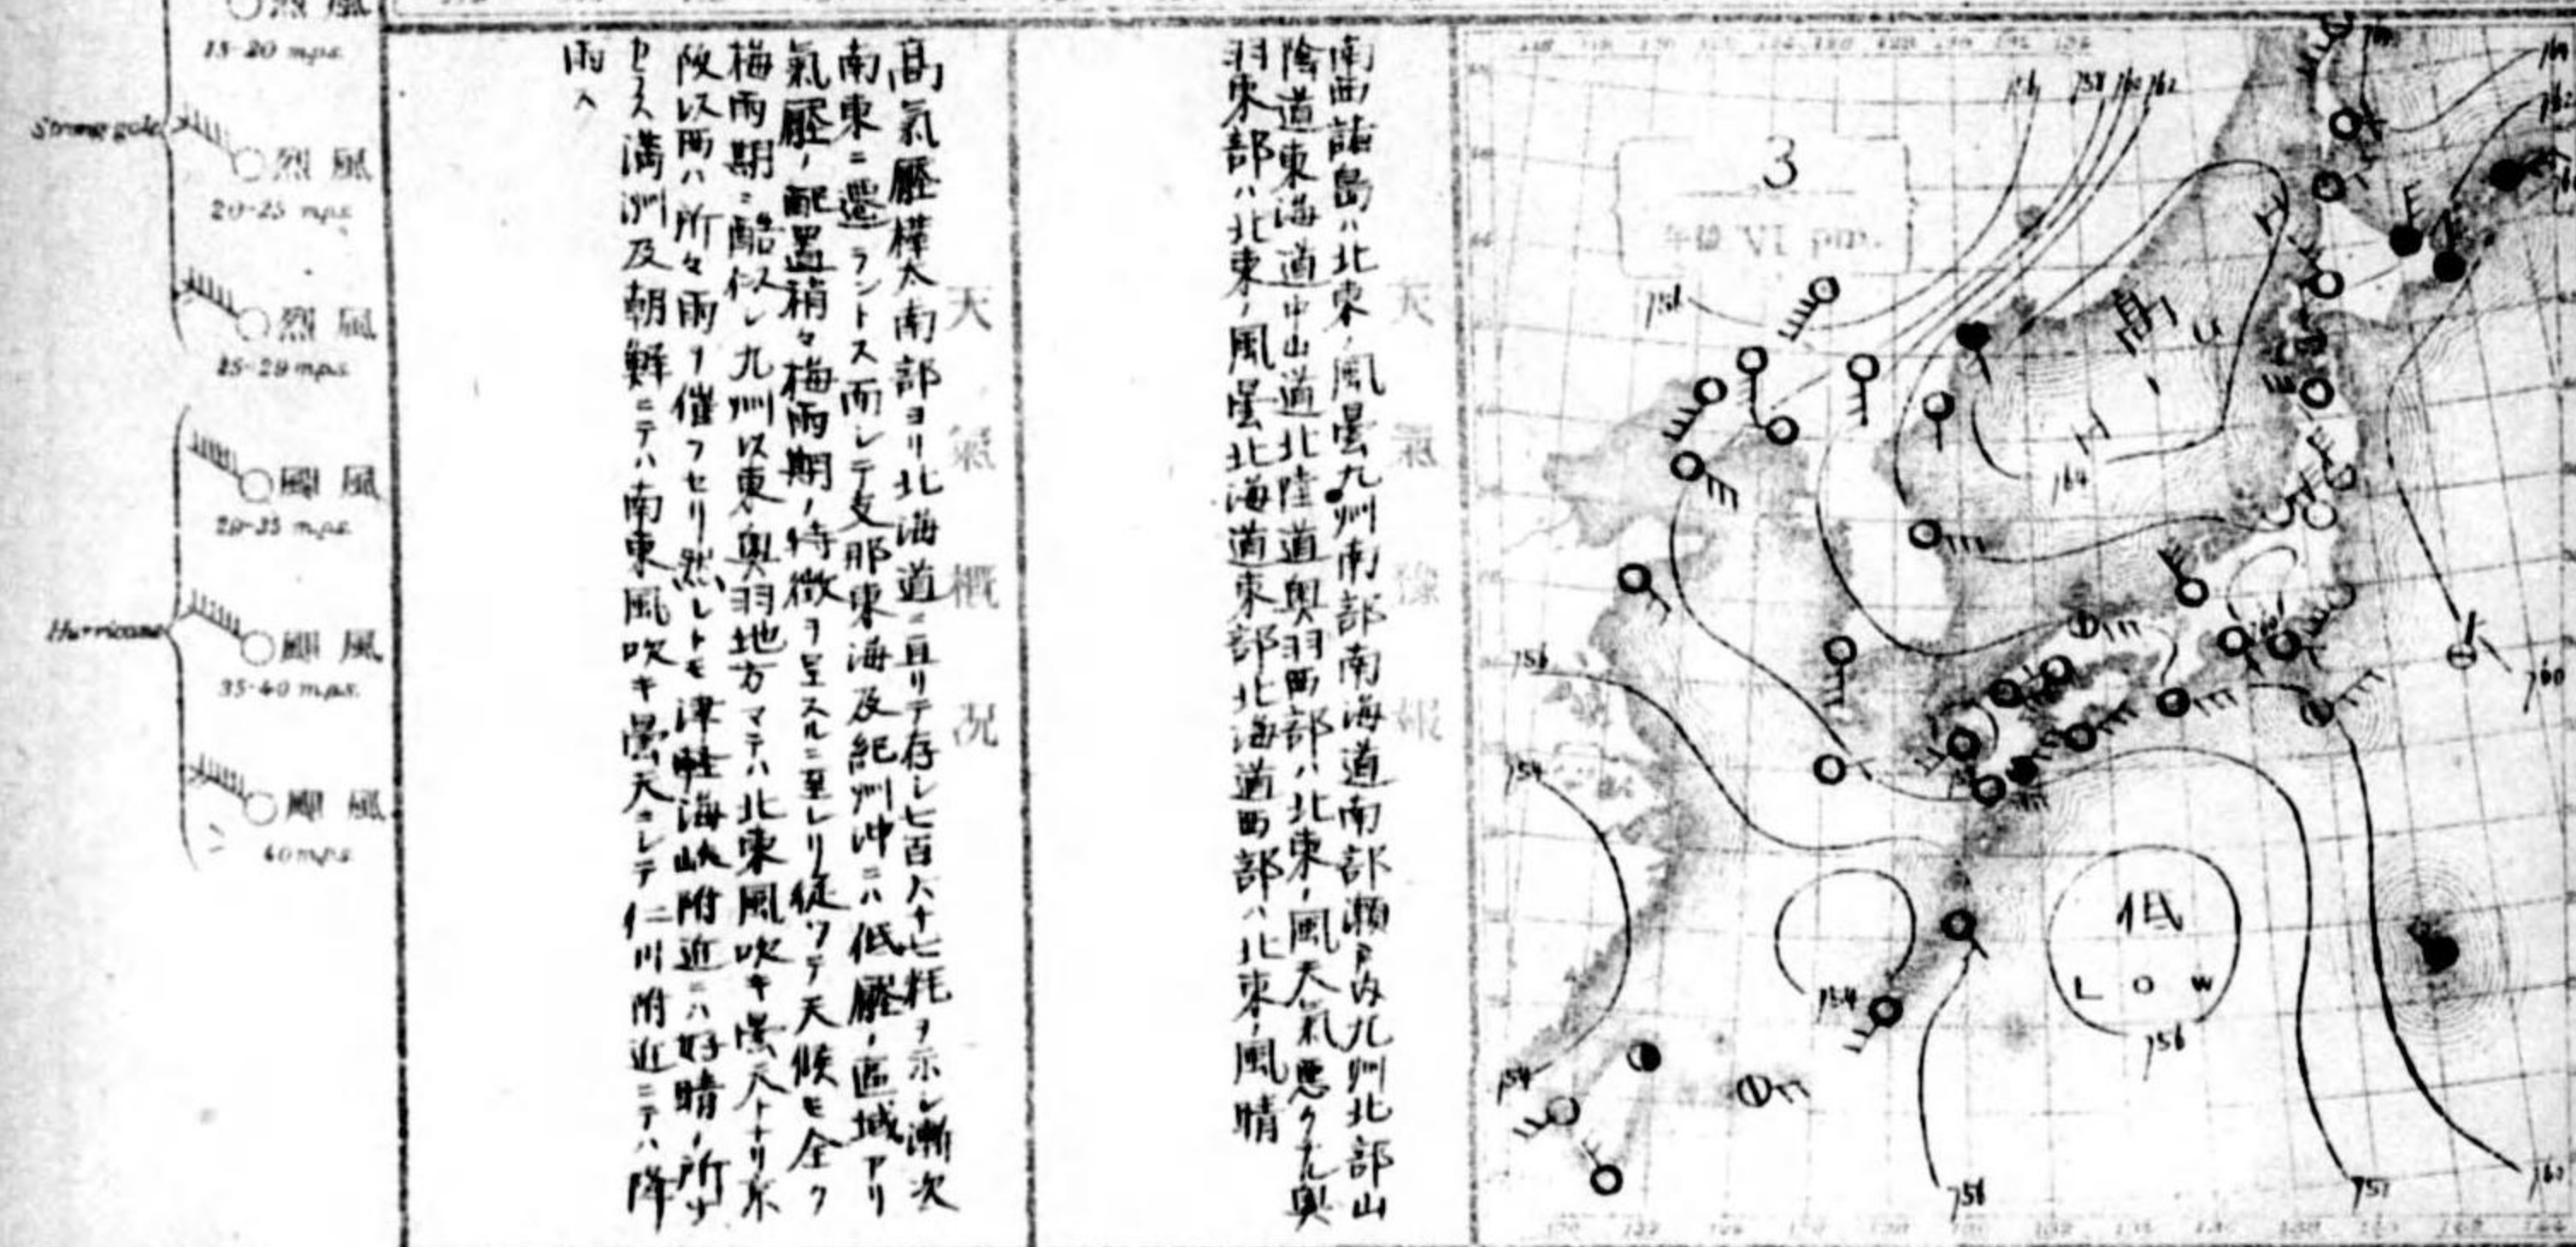 烈風
15-20 m.p.s.
Strong gale
烈風
20-25 m.p.s.
烈風
25-29 m.p.s.
颶風
29-35 m.p.s.
Hurricane
颶風
35-40 m.p.s.
颶風
40 m.p.s.
天氣豫報
南西諸島ハ北東ノ風曇九州南部南海道南部瀬戸内九州北部山
陰道東海道中山道北陸道奥羽西部ハ北東ノ風天氣悪クナル奥
羽東部ハ北東ノ風曇北海道東部北海道西部ハ北東ノ風晴
天氣概況
高氣壓樺太南部ヨリ北海道ニ亘リテ存シ七百六十七粍ヲ示シ漸次
南東ニ還ラントス而シテ支那東海及紀州沖ニハ低壓ノ區域アリ
氣壓ノ配置稍々梅雨期ノ特徴ヲ呈スルニ至レリ従ツテ天候モ全ク
梅雨期ニ酷似シ九州以東奥羽地方マテハ北東風吹キ曇天トナリ京
阪以西ハ所々雨ヲ催フセリ然レトモ津軽海峡附近ニハ好晴ノ所少
セス満洲及朝鮮ニテハ南東風吹キ曇天ニシテ仁川附近ニテハ降
雨ス
3
午後 VI p.m.
756
758
762
高
H
164
156
154
154
154
低
LOW
156
156
757
760